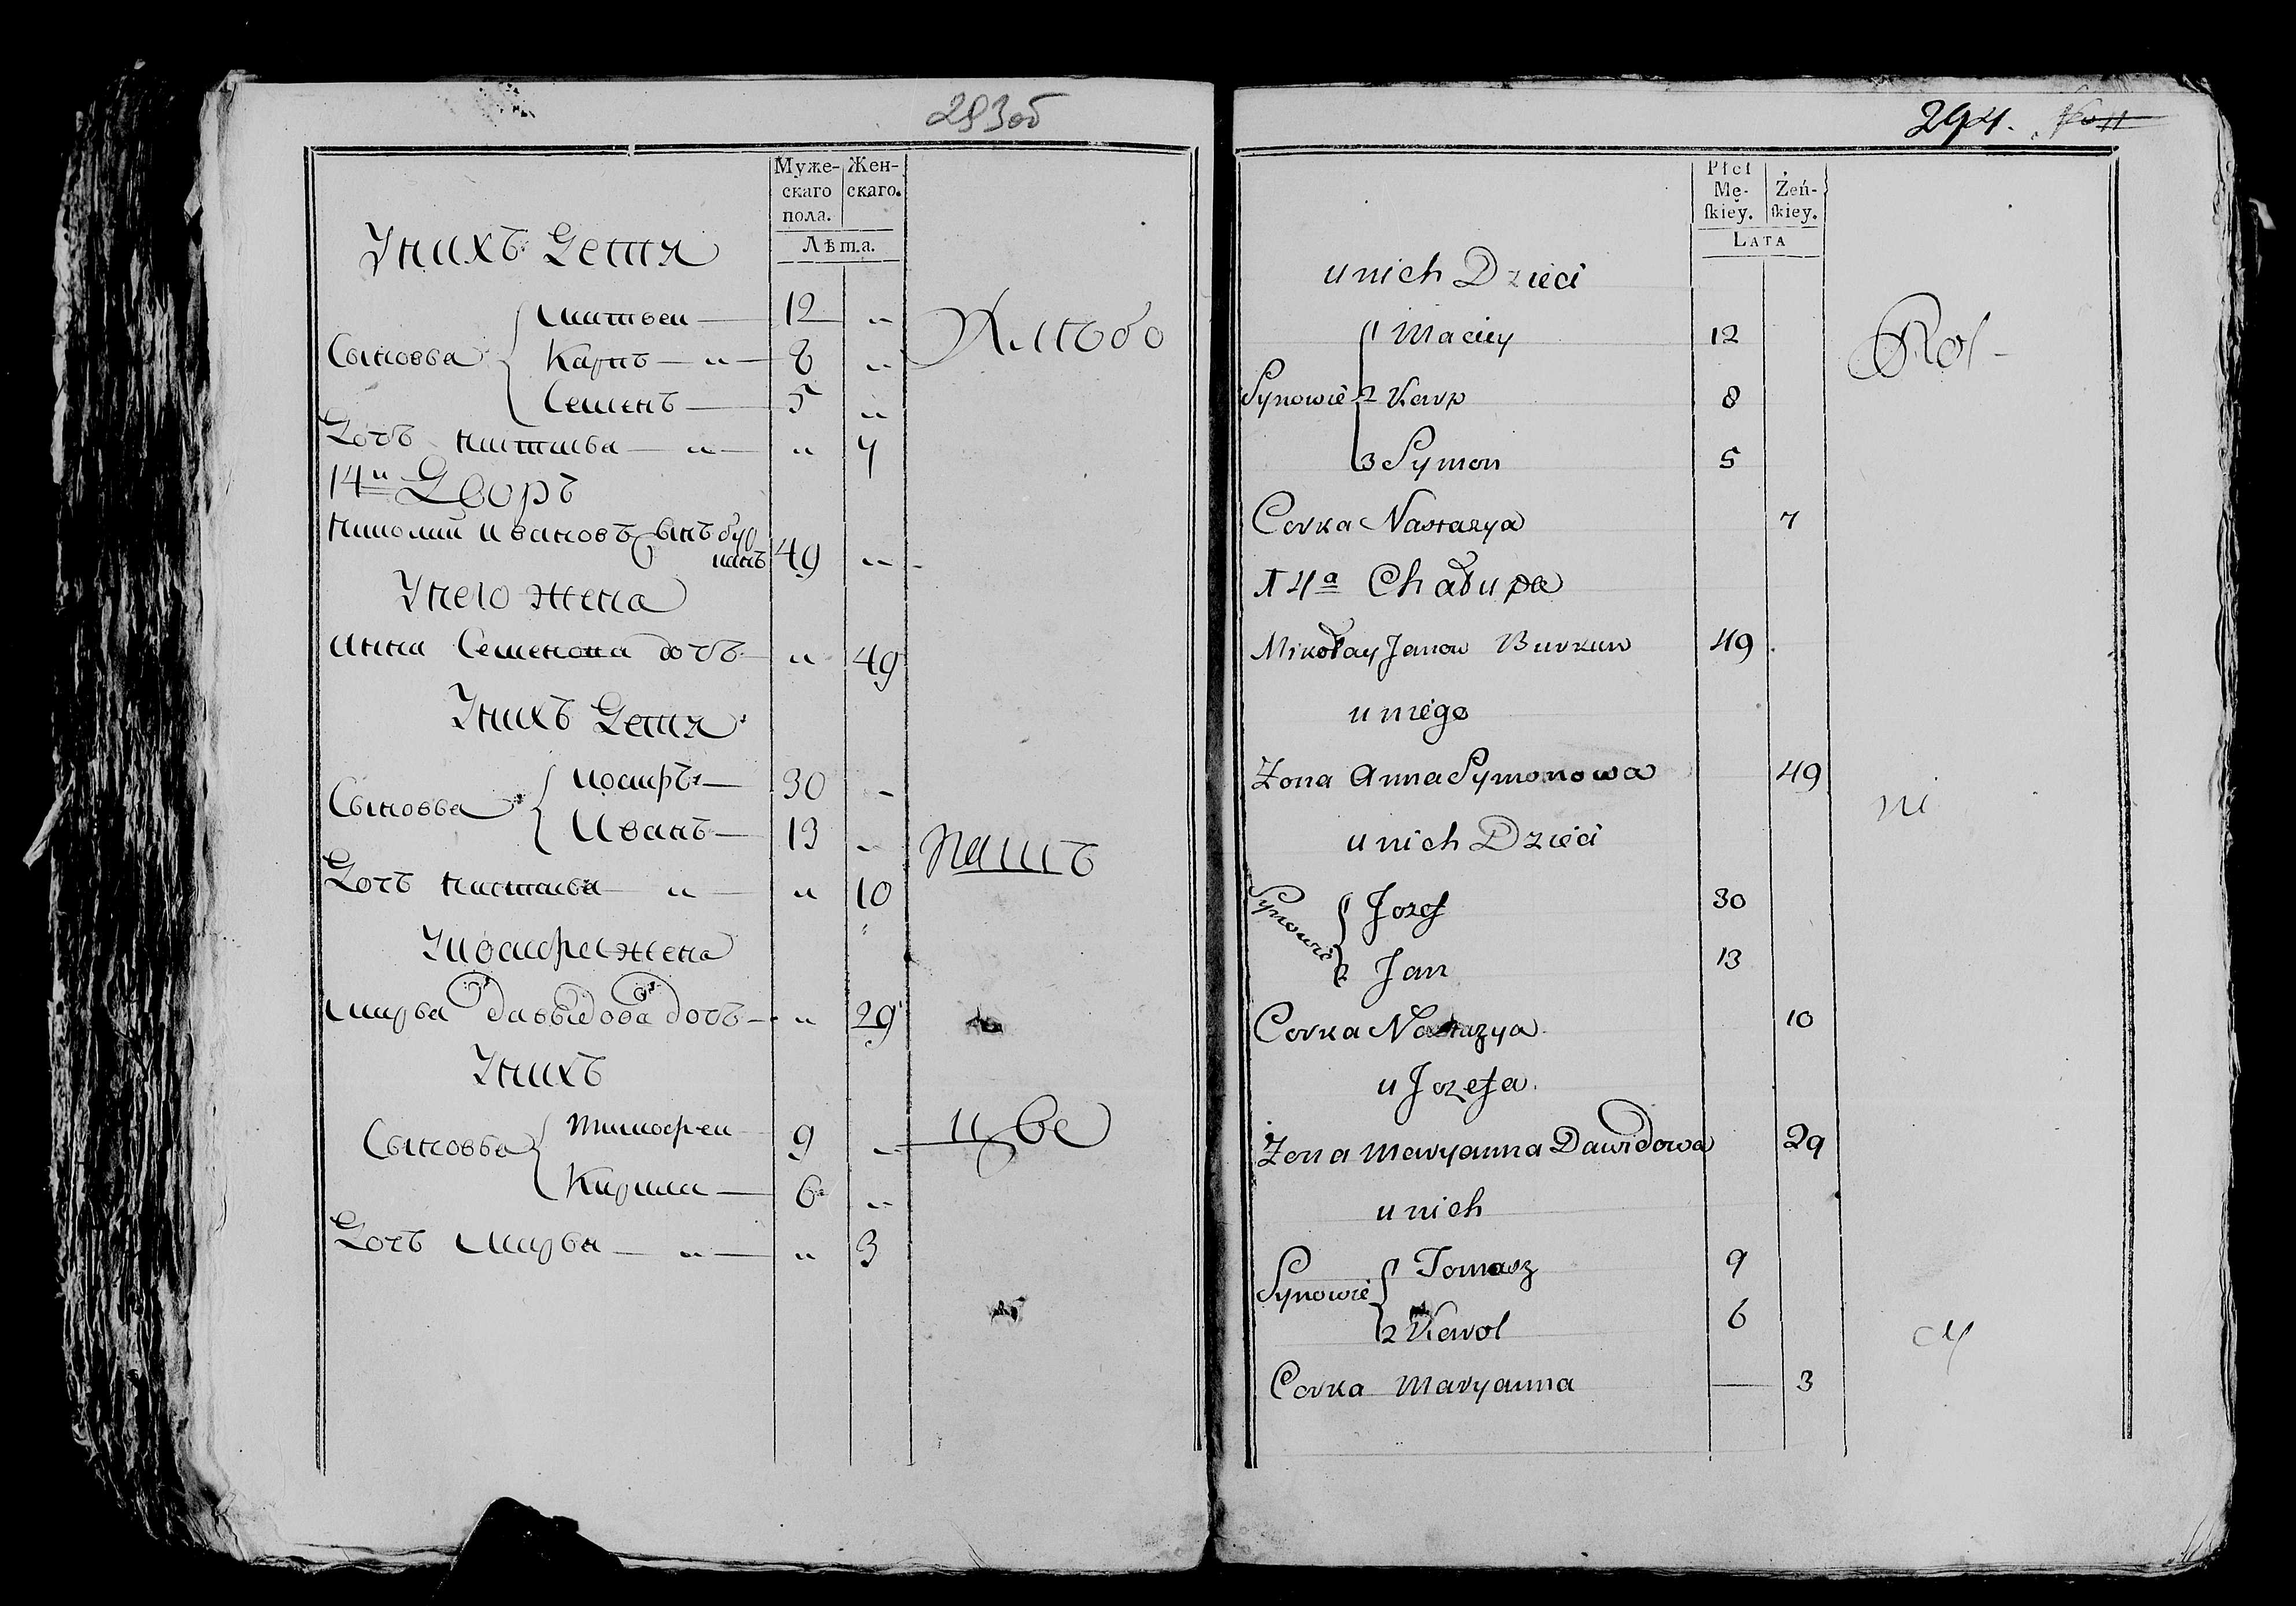 293об
Муже-
скаго
пола.
Жен-
скаго.
Лѣта.
Унихъ Дети
Сыновья
Матвеи 12 "
Карпъ " 8 "
Семенъ 5 "
Дочь Настасья " " 7
14й Дворъ
Николаи Ивановъ сынъ бур
канъ 49 "
Унего жена
Анна Семенова дочь " 49
Унихъ Дети
Сыновья
Иосифъ 30 "
Иванъ 13 "
Дочь Настасья " " 10
Уиосифа жена
Марья давыдова дочь " 29
Унихъ
Сыновья
Тимофеи 9 "
Кирила 6 "
Дочь Марья " " 3
Хлѣбо
паш
цы
294.
Płci
Mę-
ſkiey.
Żeń-
ſkiey.
LATA
u nich Dzieci
Synowie
1 Maciey 12
2 Karp 8
3 Symon 5
Corka Nastazya 7
14a Chałupa
Mikołay Janow Burkun 49
u niego
Zona Anna Symonowa 49
u nich Dzieci
Synowie
1 Jozef 30
2 Jan 13
Corka Nastazya 10
u Jozefa.
Żona Maryanna Dawidowa 29
u nich
Synowie
1 Tomasz 9
2 Karol 6
Corka Maryanna — 3
Rol-
ni
cy